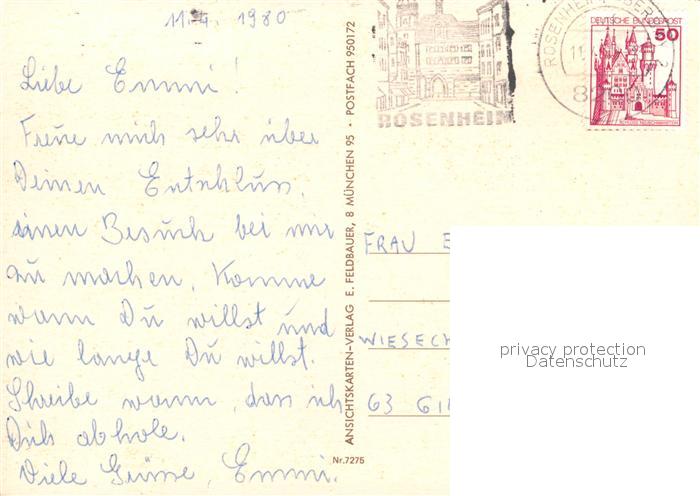 11.4. 1980
Liebe Emmi!
Freue mich sehr über
Deinen Entschluss,
einen Besuch bei mir
zu machen. Komme
wann Du willst und
wie lange Du willst.
Schreibe wann, dass ich
Dich abhole.
Viele Grüsse, Emmi.
ANSICHTSKARTEN-VERLAG E. FELDBAUER, 8 MÜNCHEN 95 · POSTFACH 950172
Nr. 7275
ROSENHEIM
ROSENHEIM
11.
DEUTSCHE BUNDESPOST
50
SCHLOSS NEUSCHWANSTEIN
FRAU E
WIESECK
63 GI
privacy protection
Datenschutz